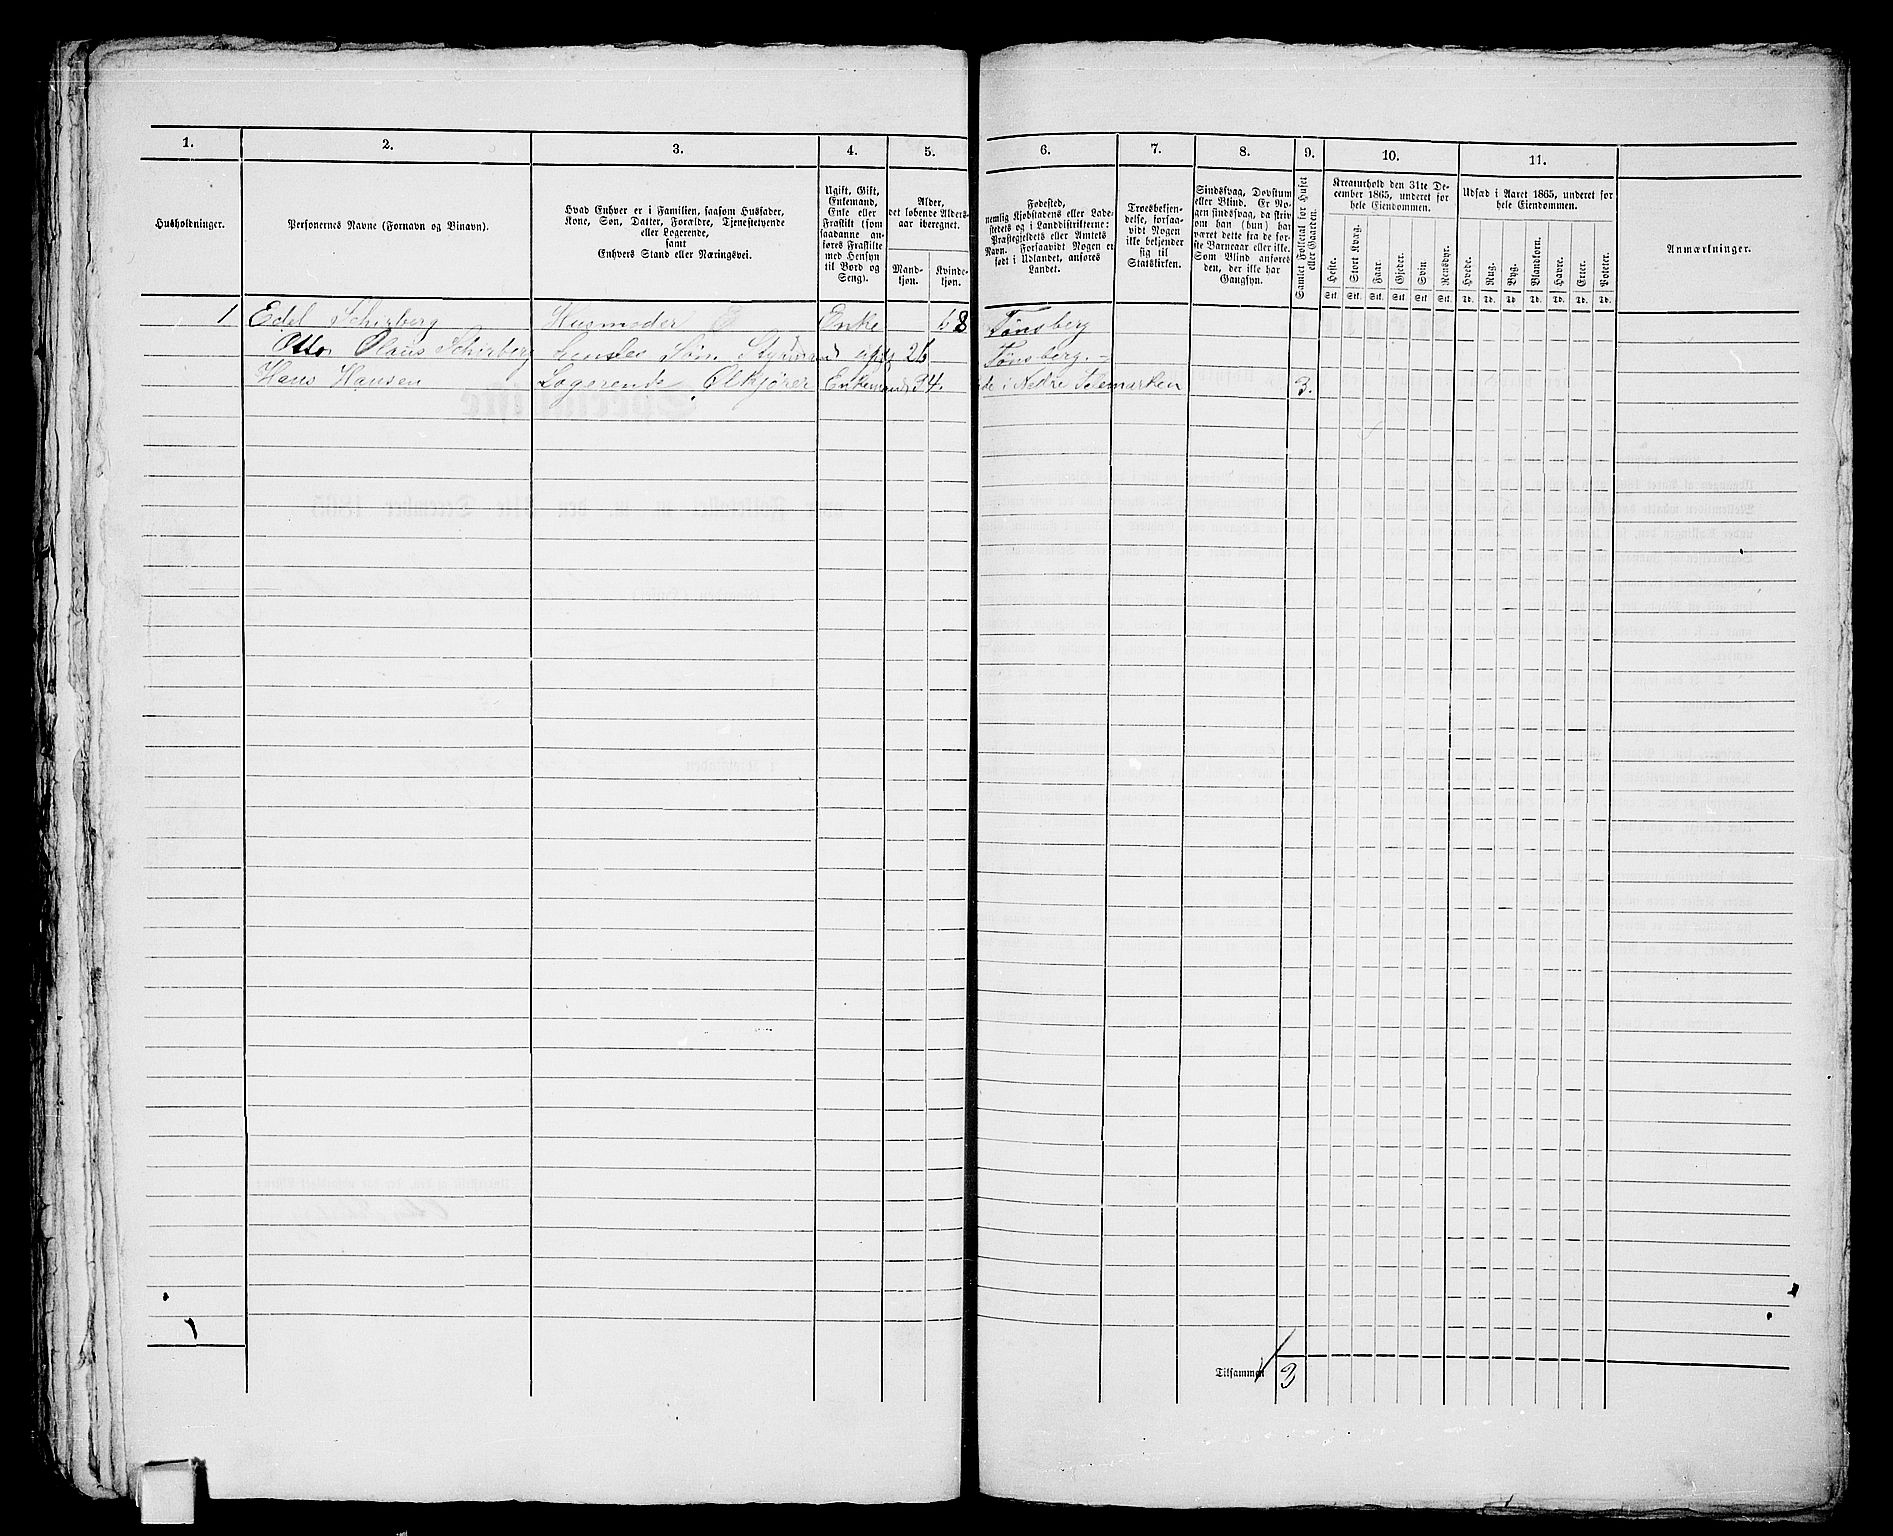 1. 2. 3. 4. 5. 6. 7. 8. 9. 10. 11.
Husholdninger.
Personernes Navne (Fornavn og Binavn).
Hvad Enhver er i Familien, saasom Husfader,
Kone, Søn, Datter, Forældre, Tjenestetyende
eller Logerende,
samt
Enhvers Stand eller Næringsvei.
Ugift, Gift,
Enkemand,
Enke eller
Fraskilt (som
saadanne an-
føres Fraskilte
med Hensyn
til Bord og
Seng).
Alder,
det løbende Alders-
aar iberegnet.
Mand-
kjøn.
Kvinde-
kjøn.
Fødested,
nemlig Kjøbstadens eller Lade-
stedets og i Landdistrikterne:
Præstegjeldets eller Amtets
Navn. Forsaavidt Nogen er
født i Udlandet, anføres
Landet.
Troesbekjen-
delse, forsaa-
vidt Nogen
ikke bekjender
sig til
Statskirken.
Sindssvag, Døvstum
eller Blind. Er No-
gen sindssvag, da skriv
om han (hun) har
været dette fra de før-
ste Barneaar eller ikke.
Som Blind anføres
den, der ikke har
Gangsyn.
Samlet Folketal for Huset
eller Gaarden.
Kreaturhold den 31te De-
cember 1865, underet for
hele Eiendommen.
Heste. Stort Kvæg. Faar. Gjeder. Svin. Rensdyr.
Stk. Stk. Stk. Stk. Stk. Stk.
Udsæd i Aaret 1865, underet for
hele Eiendommen.
Hvede. Rug. Byg. Blandkorn. Havre. Erter. Poteter.
Td. Td. Td. Td. Td. Td. Td.
Anmærkninger.
1 Edel Schirberg Husmoder Enke 68 Tønsberg
Otto Olaus Schirberg Søn ugift 26 Tønsberg
Hans Hansen Logerende Enkemand 34 i Nedre Telemarken 3.
Tilsammen 3